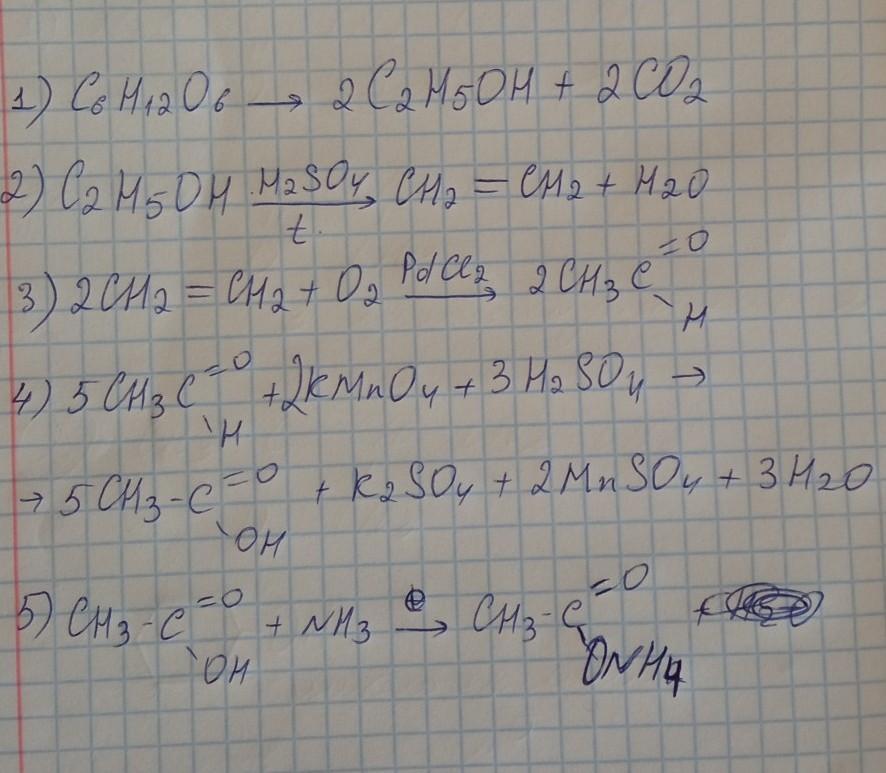 1) C6H12O6 → 2C2H5OH + 2CO2
2) C2H5OH H2SO4 t → CH2 = CH2 + H2O
3) 2CH2 = CH2 + O2 PdCl2 → 2CH3C =O \H
4) 5CH3C =O \H + 2KMnO4 + 3H2SO4 →
→ 5CH3-C =O \OH + K2SO4 + 2MnSO4 + 3H2O
5) CH3-C =O \OH + NH3 → CH3-C =O \ONH4 +